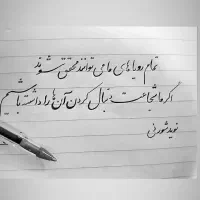 تمام رویاهای ما می توانند محقق شوند
اگر ما شجاعت دنبال کردن آن ها را داشته باشیم
نوید شورنی